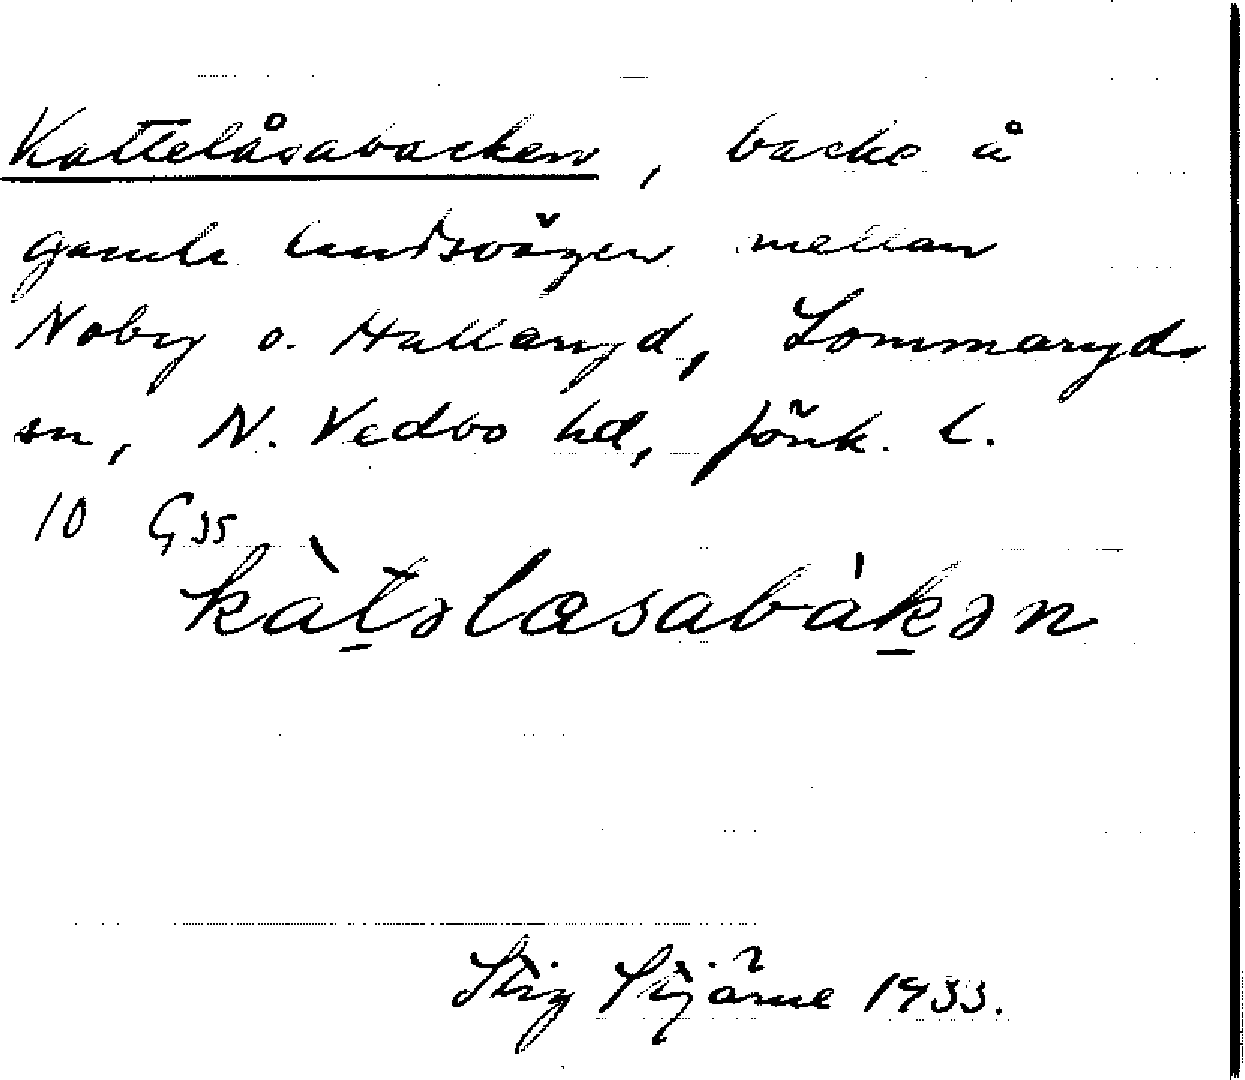 Kattelåsabacken, backe å
gamla landsvägen mellan
Noby o. Hullaryd, Lommaryds
sn, N. Vedbo hd, Jönk. l.
10 G35
kàt̲əlɑsabák̲ən
Stig Stjärne 1933.